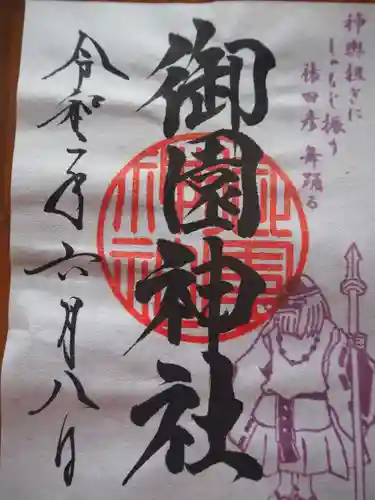 神輿担ぎに
しゃもじ振り
猿田彦 舞踊る
御園神社
令和二年 六月八日